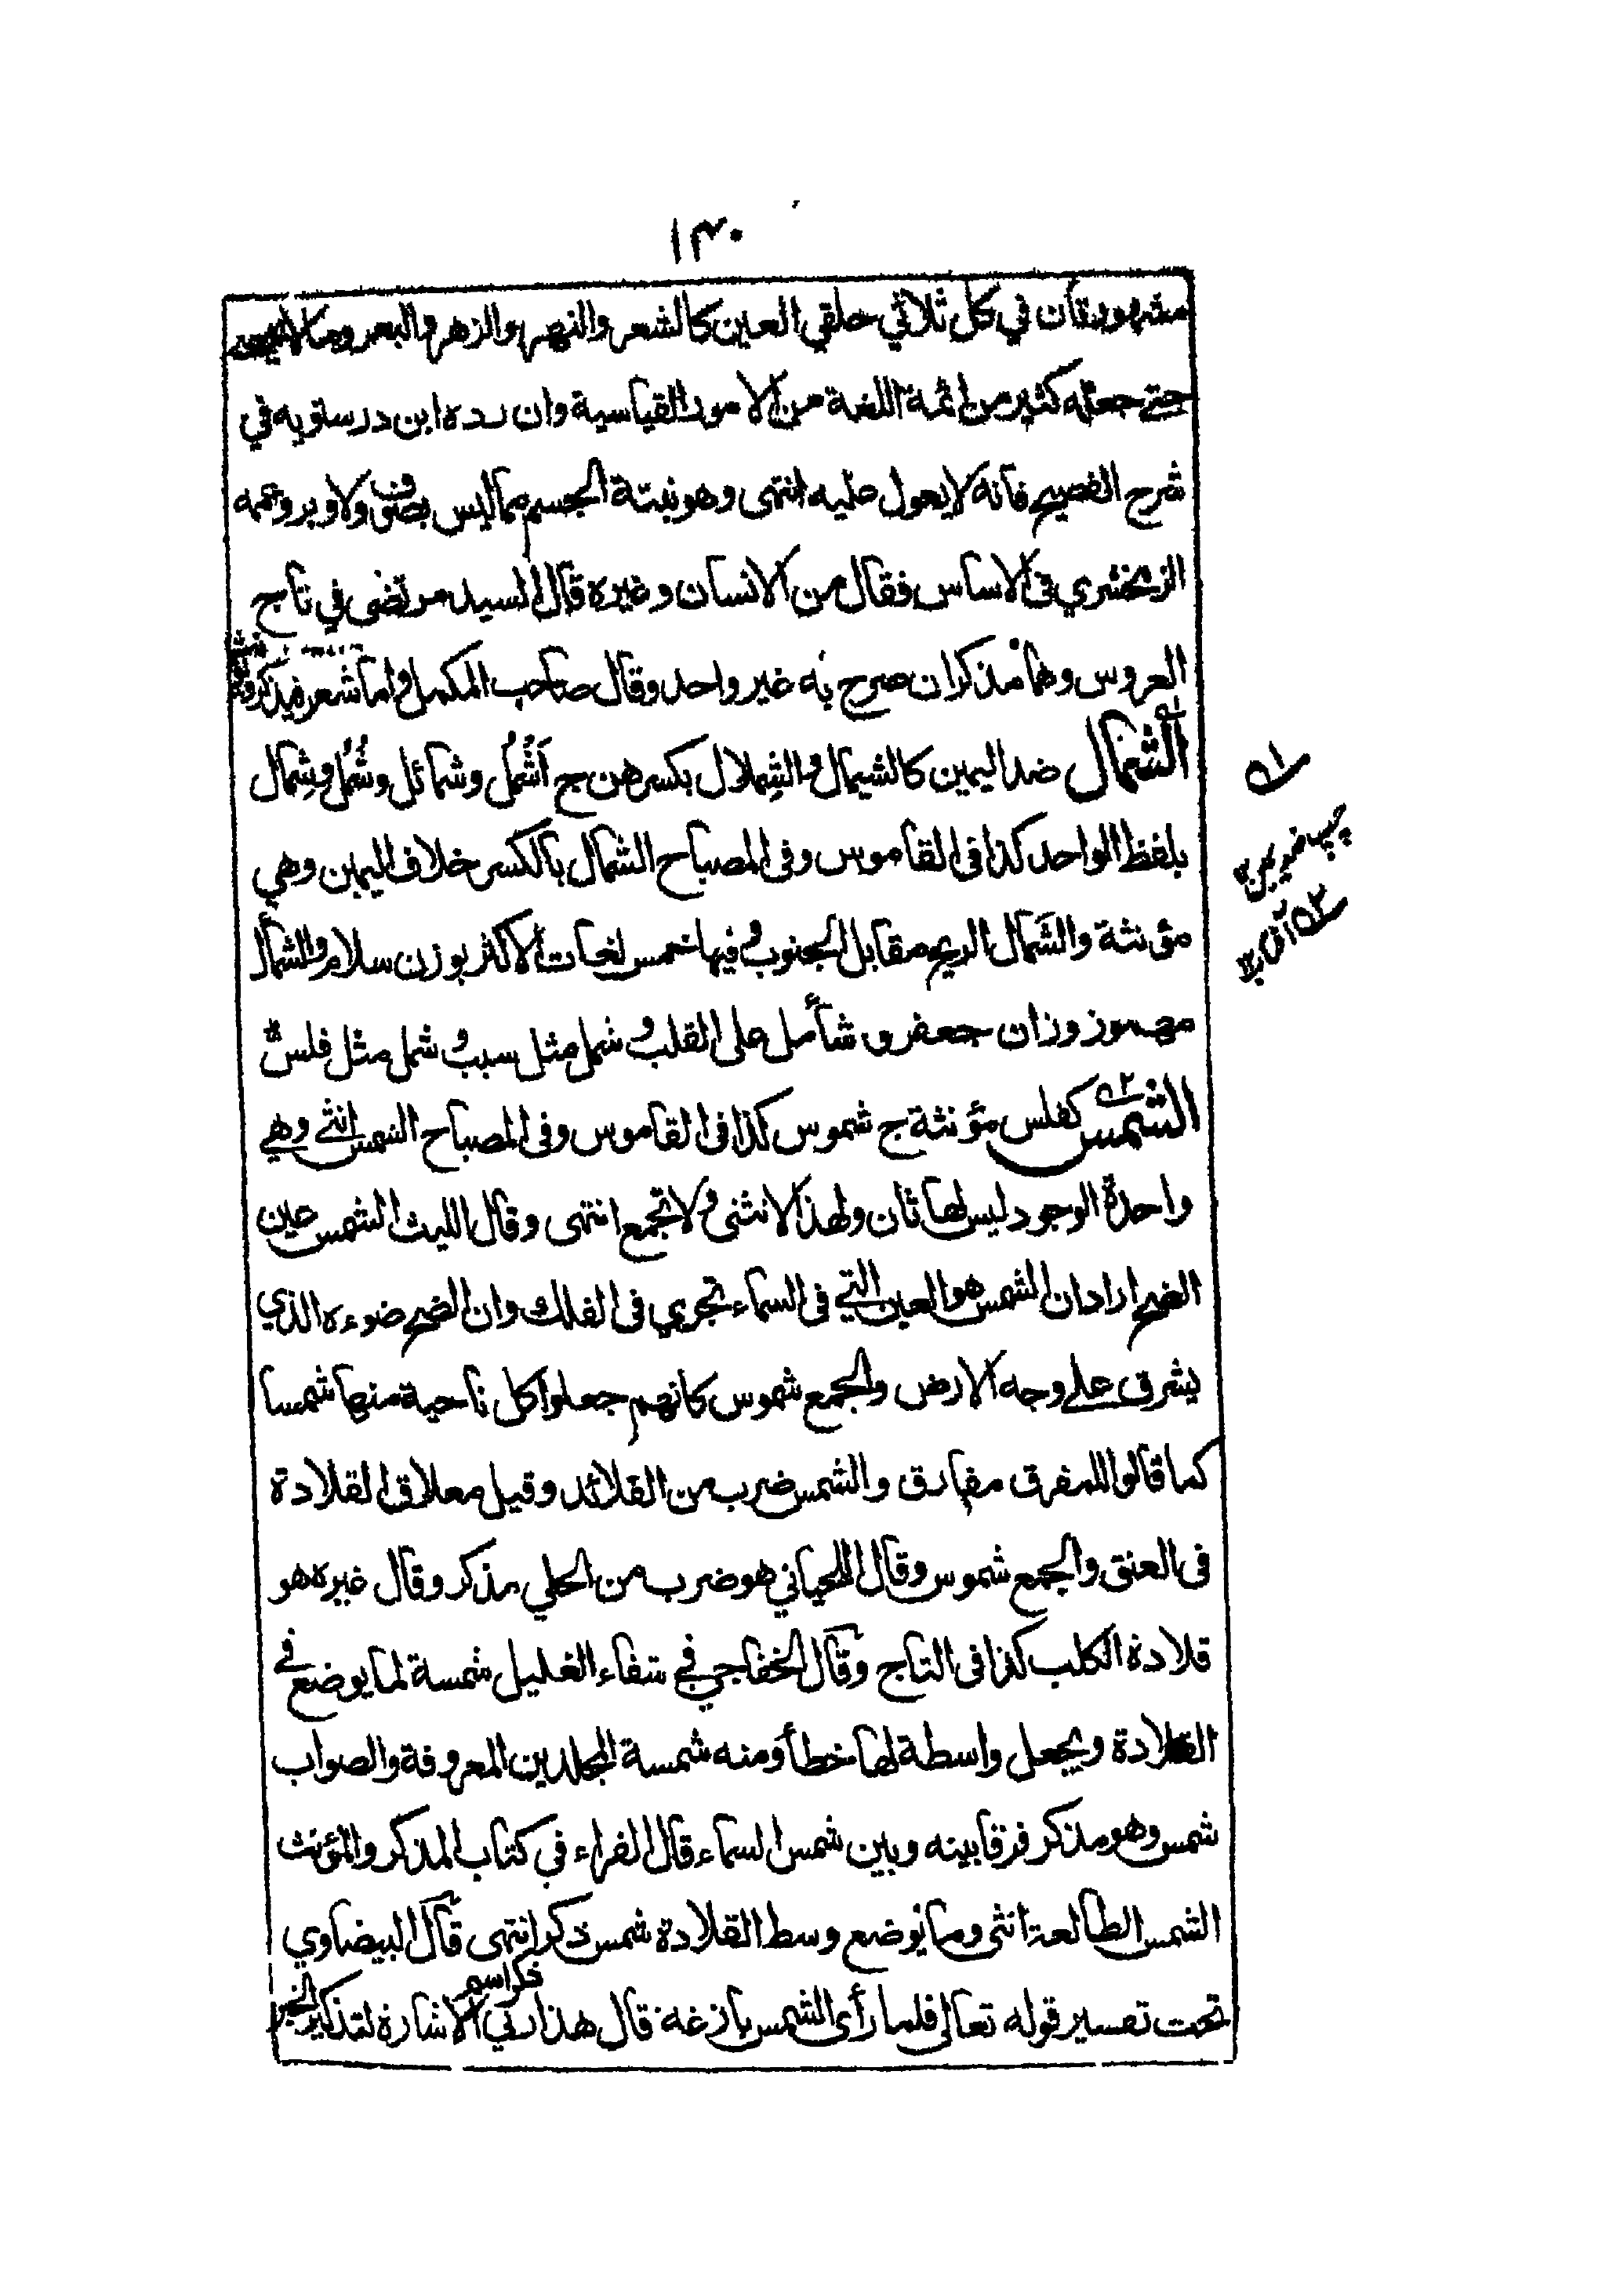 ١٣٠
مشهورتان في كل ثلاثي حلقي العين كالشعر والنهر والزهر والبعر وما لا يحصى
حتے جعله كثير من ائمة اللغة من الامور القياسية وان رده ابن درستويه في
شرح الفصيح فانه لا يعول عليه انتهى وهو نبتة الجسم مما ليس بصوف ولا وبر وعممه
الزمخشري فى الاساس فقال من الانسان وغيره قال السيد مرتضى في تاج
العروس وهما مذكران صرح به غير واحد وقال صاحب المكمل واما شعر فيذكر ويؤنث
الشمال ضد اليمين كالشيمال والشِملال بكسرهن ج اَشْمُل وشمائل وشُمُل وشِمال
بلفظ الواحد كذا فى القاموس وفى المصباح الشمال بالكسر خلاف اليمين وهي
مؤنثة والشَمال الريح مقابل الجنوب وفيها خمس لغات الاكثر بوزن سلام والشمأل
مهموز وزان جعفر و شأمل على القلب و شمل مثل سبب و شمل مثل فلس
الشمس كفلس مؤنثة ج شموس كذا فى القاموس وفى المصباح الشمس انثے وهي
واحدة الوجود ليس لها ثان ولهذا لا تثنى ولا تجمع انتهى وقال الليث الشمس عين
الضح اراد ان الشمس هو العين التے فى السماء تجري فى الفلك وان الضح ضوءه الذي
يشرق علے وجه الارض والجمع شموس كانهم جعلوا كل ناحية منها شمسا
كما قالوا للمفرق مفارق والشمس ضرب من القلائد وقيل معلاق القلادة
فى العنق والجمع شموس وقال اللحياني هو ضرب من الحلي مذكر وقال غيره هو
قلادة الكلب كذا فى التاج وقال الخفاجي فے شفاء الغليل شمسة لما يوضع فے
القلادة ويجعل واسطة لها خطأ ومنه شمسة المجلدين المعروفة والصواب
شمس وهو مذكر فرقا بينه وبين شمس السماء قال الفراء في كتاب المذكر والمؤنث
الشمس الطالعة انثى وما يوضع وسط القلادة شمس ذكر انتهى قال البيضاوي
تحت تفسير قوله تعالى فلما رأى الشمس بازغة قال هذا ربي ذكر اسم الاشارة لتذكير الخبر